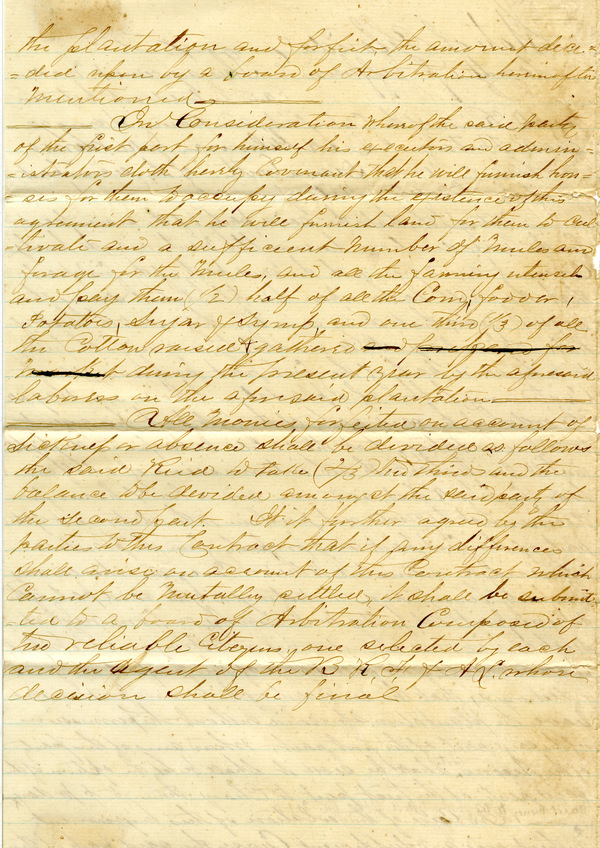 the plantation and forfeit the amount deci-
-ded upon by a board of Arbitration hereinafter
Mentioned
In Consideration whereof the said party
of the first part for himself his executors an admin-
-istrators doth hereby Covenant that he will furnish hou-
-ses for them to occupy during the existence of this
agreement that he will furnish land for them to cul-
-tivate and a sufficient Number of Mules and
forage for the Mules, and all the farming utensils
and pay them (1/2) half of all the Corn, foddor,
Potatoes, Sugar & Syrup, and one third (1/3) of all
the Cotton raised & gathered and prepared for
Market during the present year by the aforesaid
laborers on the aforesaid plantation
All Monies forfeited on account of
Sickness or absence shall be divided as follows
the said Reid to take (2/3) two Thirds and the
balance to be divided amongst the said party of
the second part. It is further agreed by the
parties to this Contract that if any differences
shall arise on account of this Contract which
Cannot be Mutually settled, it shall be submit-
-ted to a board of Arbitration Composed of
two reliable Citizens, one selected by each
and the agent of the B R, F & A L. whose
decision shall be final